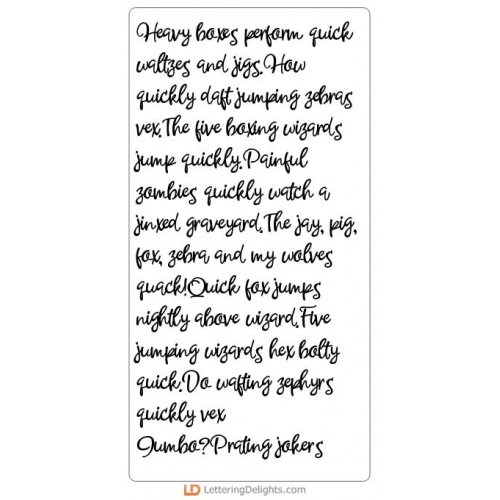 Heavy boxes perform quick
waltzes and jigs.How
quickly daft jumping zebras
vex.The five boxing wizards
jump quickly.Painful
zombies quickly watch a
jinxed graveyard.The jay, pig,
fox, zebra and my wolves
quack!Quick fox jumps
nightly above wizard.Five
jumping wizards hex bolty
quick.Do wafting zephyrs
quickly vex
Jumbo?Prating jokers
LD LetteringDelights.com